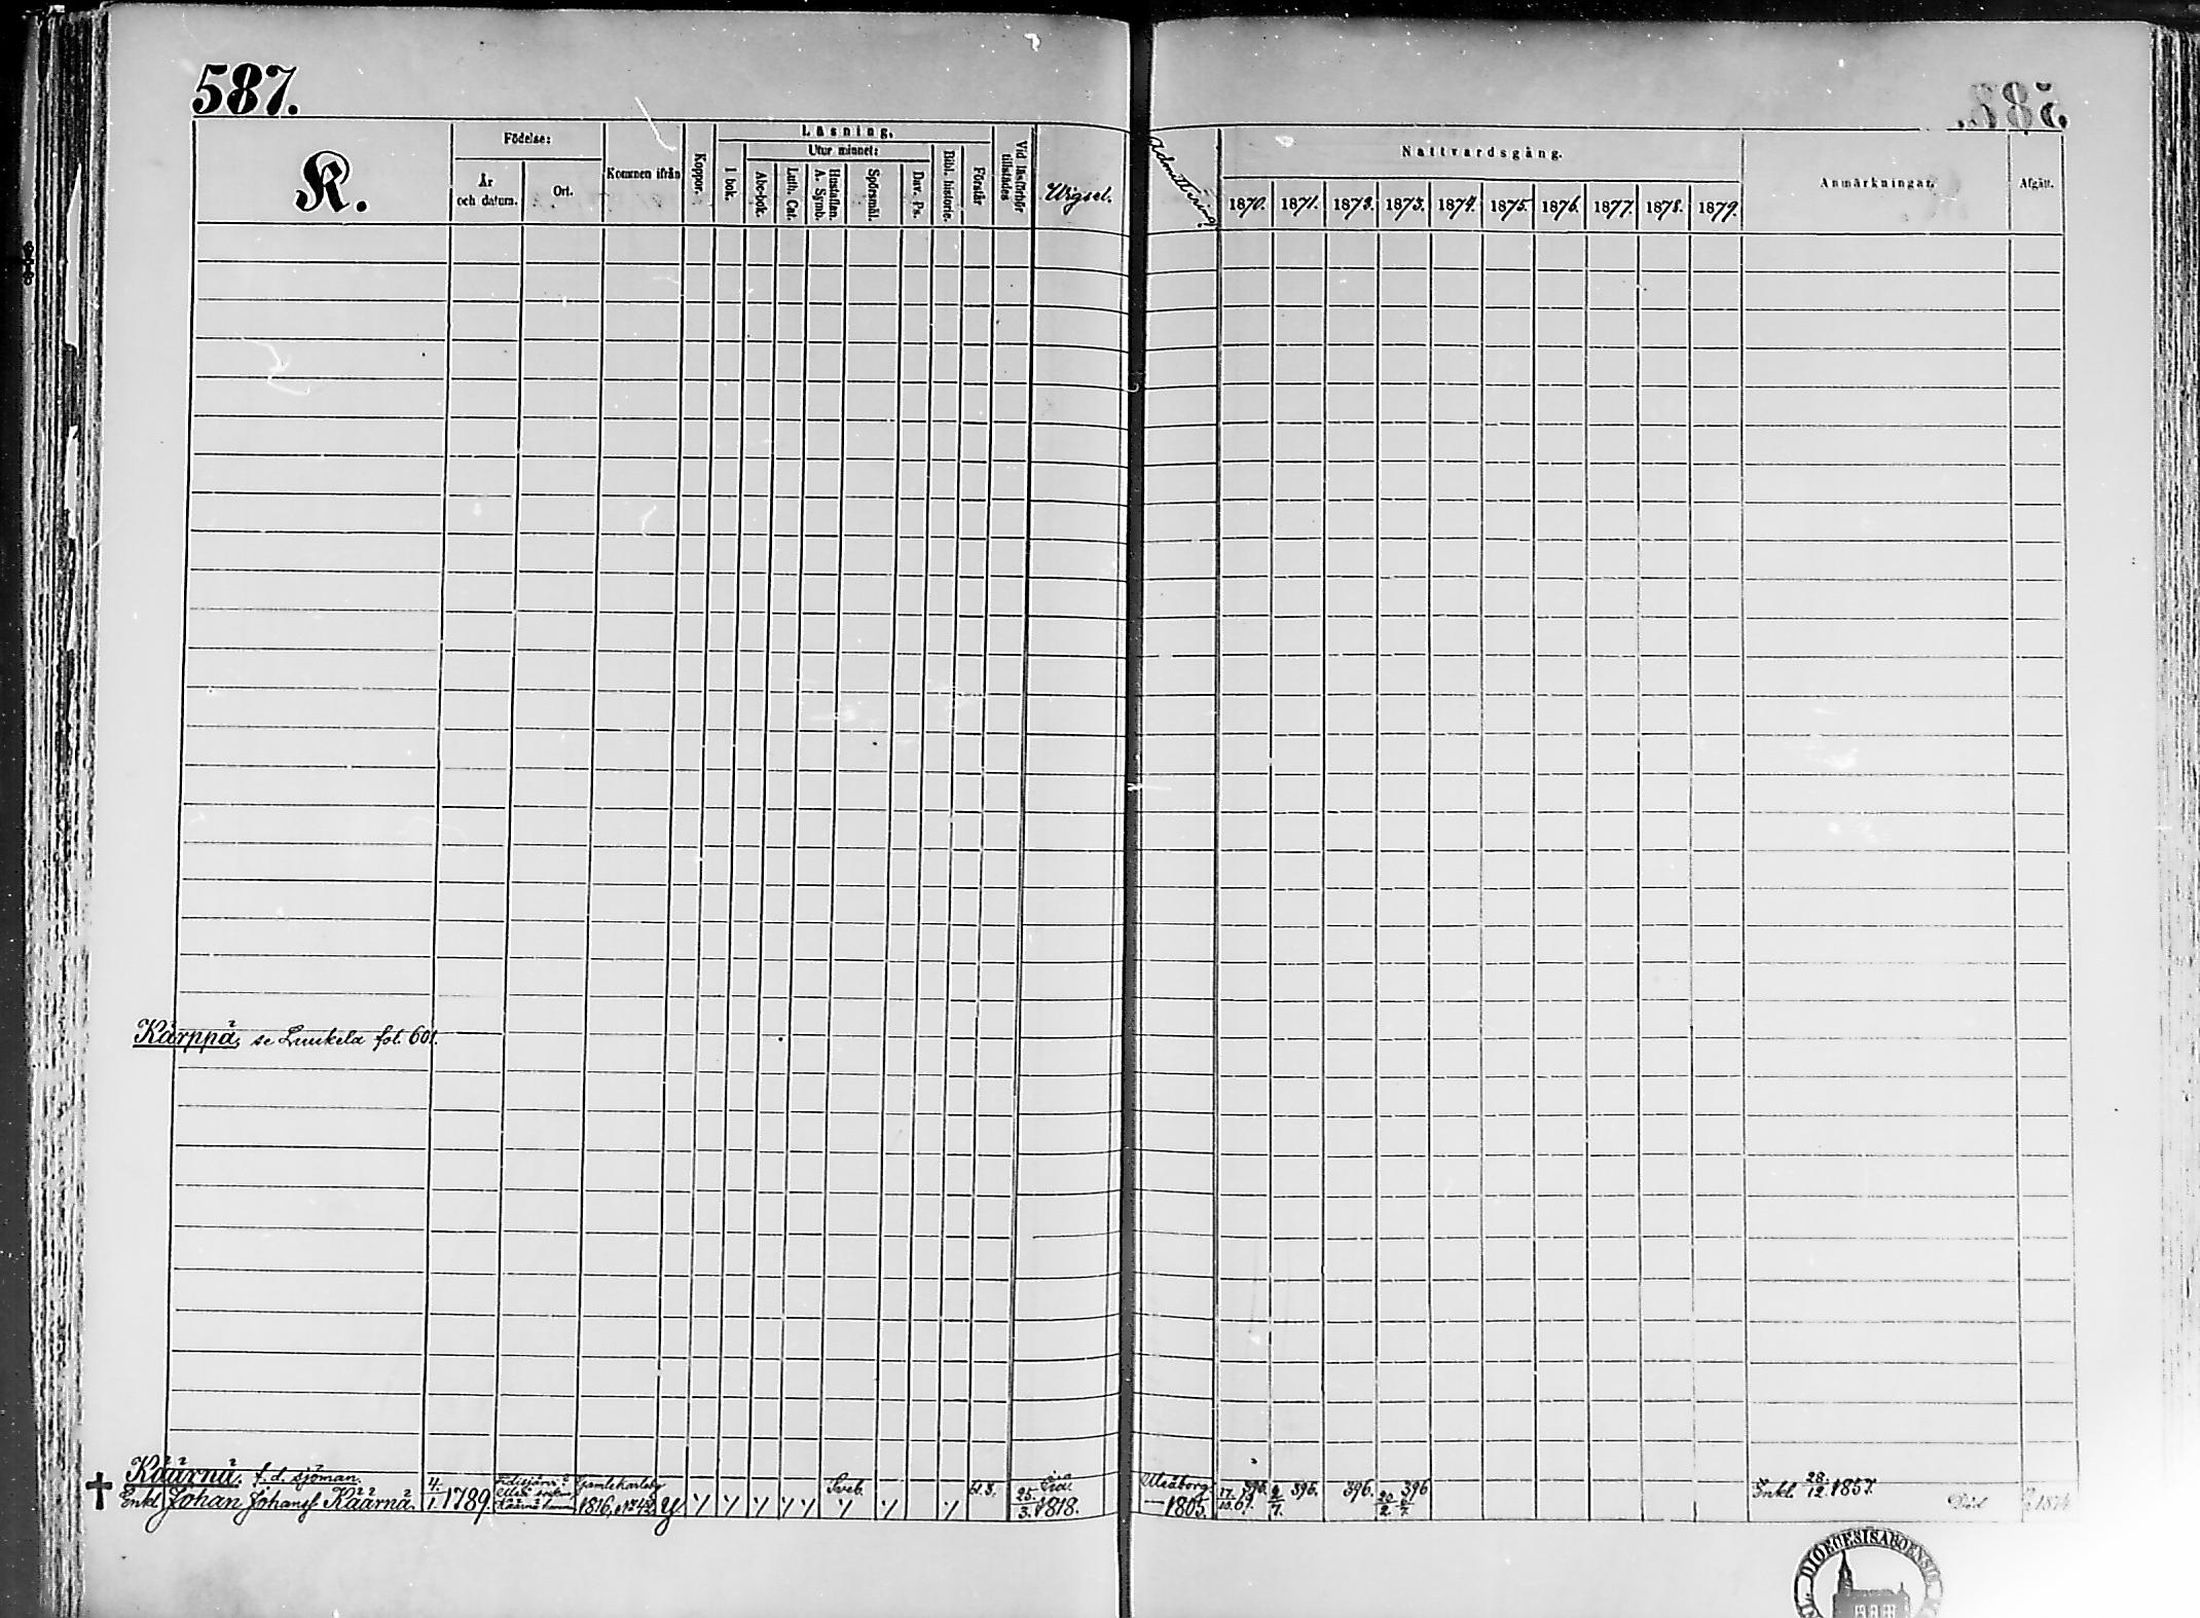 587.
K.
Födelse:
År och datum.
Ort.
Kommen ifrån
Koppor.
Läsning.
I bok.
Utur minnet:
Abc-bok.
Luth. Cat.
Hustaflan. A. Symb.
Spörsmål.
Dav. Ps.
Bibl. historie.
Förstår
Vid läsförhör tillstädes
Wigsel.
Admittering.
Nattvardsgång.
1870. 1871. 1872. 1873. 1874. 1875. 1876. 1877. 1878. 1879.
Anmärkningar.
Afgått.
Kärppä, se Luukela fol. 601.
Käärnä. f. d. sjöman.
Enkl. Johan Johanss. Käärnä. 4/1 1789. Gamlekarleby 1816, Sveb. 25/3 1818. Uleåborg 1805. 17/10 69. 396. 2/7. 396. 396. 20/2 396 Enkl. 28/12 1857. Död
DIOECESIS ABOENSIS